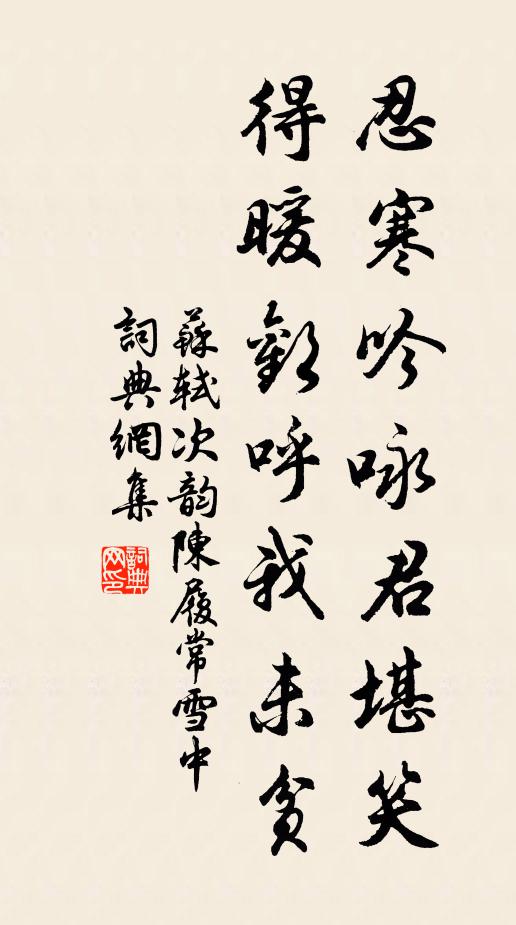 忍寒吟咏君堪笑
得暖歡呼我未貧
蘇軾次韵陳履常雪中
詞典網集
詞典
网印